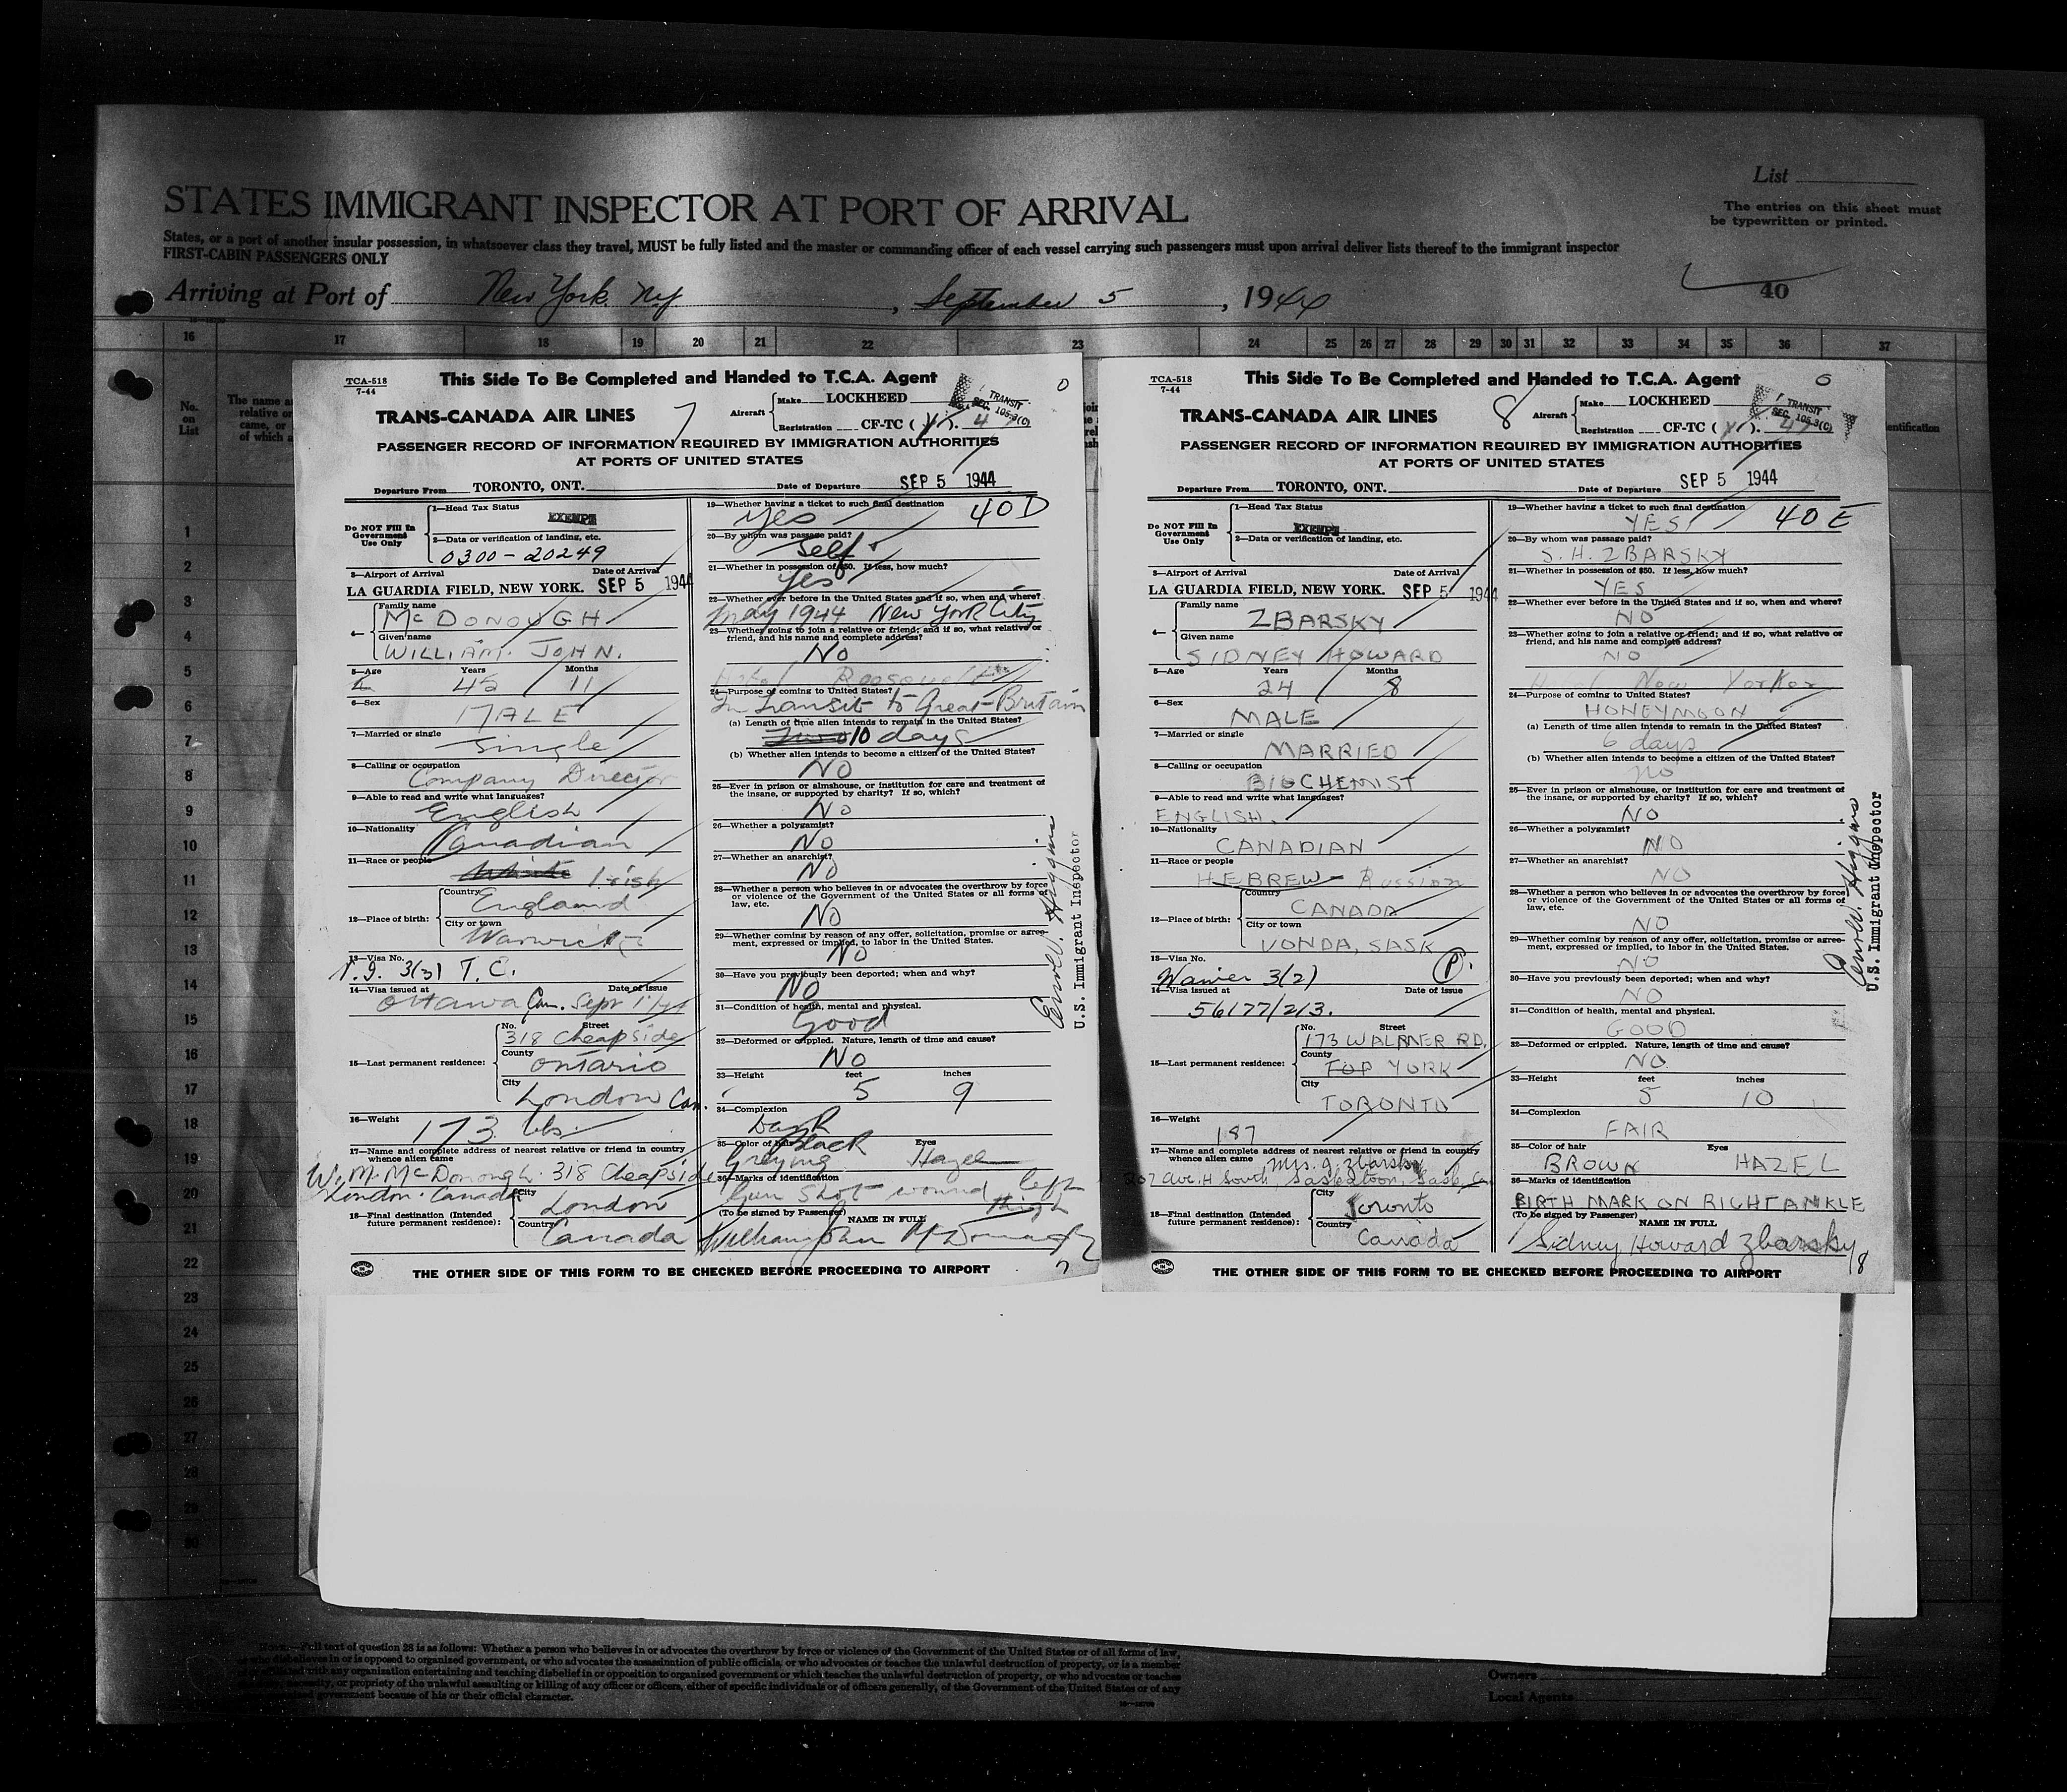 List
The entries on this sheet must
be typewritten or printed.
STATES IMMIGRANT INSPECTOR AT PORT OF ARRIVAL
States, or a port of another insular possession, in whatsoever class they travel, MUST be fully listed and the master or commanding officer of each vessel carrying such passengers must upon arrival deliver lists thereof to the immigrant inspector
FIRST-CABIN PASSENGERS ONLY
Arriving at Port of New York, N.Y., September 5, 1944
40
16 17 18 19 20 21 22 23 24 25 26 27 28 29 30 31 32 33 34 35 36 37
No.
on
List
The name a
relative or
came, or
of which a
entification
1
2
3
4
5
6
7
8
9
10
11
12
13
14
15
16
17
18
19
20
21
22
23
24
25
26
27
28
29
30
TCA-518
7-44
This Side To Be Completed and Handed to T.C.A. Agent
0
TRANS-CANADA AIR LINES
7
Aircraft
Make LOCKHEED
Registration CF-TC (X). 47
TRANSIT
SEC. 105.3(C)
PASSENGER RECORD OF INFORMATION REQUIRED BY IMMIGRATION AUTHORITIES
AT PORTS OF UNITED STATES
Departure From TORONTO, ONT. Date of Departure SEP 5 1944
Do NOT Fill In
Government
Use Only
1—Head Tax Status
EXEMPT
2—Data or verification of landing, etc.
0300-20249
3—Airport of Arrival Date of Arrival
LA GUARDIA FIELD, NEW YORK. SEP 5 1944
4—
Family name
McDONOUGH
Given name
WILLIAM JOHN.
5—Age Years Months
45 11
6—Sex
MALE
7—Married or single
Single
8—Calling or occupation
Company Director
9—Able to read and write what languages?
English
10—Nationality
Canadian
11—Race or people
White Irish
12—Place of birth:
Country
England
City or town
Warwick
13—Visa No.
3(3) T.C.
14—Visa issued at Date of Issue
Ottawa Can. Sept 1/44
15—Last permanent residence:
No. Street
318 Cheapside
County
Ontario
City
London Can.
16—Weight
173 lbs.
17—Name and complete address of nearest relative or friend in country
whence alien came
W. M. McDonough 318 Cheapside
London. Canada
18—Final destination (Intended
future permanent residence):
City
London
Country
Canada
19—Whether having a ticket to such final destination
Yes
40D
20—By whom was passage paid?
Self
21—Whether in possession of $50. If less, how much?
Yes
22—Whether ever before in the United States and if so, when and where?
May 1944 New York City
23—Whether going to join a relative or friend; and if so, what relative or
friend, and his name and complete address?
No
Hotel Roosevelt
24—Purpose of coming to United States?
In Transit to Great-Britain
(a) Length of time alien intends to remain in the United States?
Two 10 days
(b) Whether alien intends to become a citizen of the United States?
NO
25—Ever in prison or almshouse, or institution for care and treatment of
the insane, or supported by charity? If so, which?
NO
26—Whether a polygamist?
NO
27—Whether an anarchist?
NO
28—Whether a person who believes in or advocates the overthrow by force
or violence of the Government of the United States or all forms of
law, etc.
NO
29—Whether coming by reason of any offer, solicitation, promise or agree-
ment, expressed or implied, to labor in the United States.
NO
30—Have you previously been deported; when and why?
NO
31—Condition of health, mental and physical.
Good
32—Deformed or crippled. Nature, length of time and cause?
NO
33—Height feet inches
5 9
34—Complexion
Dark
35—Color of hair Eyes
Black
Greying Hazel
36—Marks of identification
Gun shot wound left
thigh
(To be signed by Passenger) NAME IN FULL
William John McDonough
7
U.S. Immigrant Inspector
THE OTHER SIDE OF THIS FORM TO BE CHECKED BEFORE PROCEEDING TO AIRPORT
TCA-518
7-44
This Side To Be Completed and Handed to T.C.A. Agent
0
TRANS-CANADA AIR LINES
8
Aircraft
Make LOCKHEED
Registration CF-TC (X). 47
TRANSIT
SEC. 105.3(C)
PASSENGER RECORD OF INFORMATION REQUIRED BY IMMIGRATION AUTHORITIES
AT PORTS OF UNITED STATES
Departure From TORONTO, ONT. Date of Departure SEP 5 1944
Do NOT Fill In
Government
Use Only
1—Head Tax Status
EXEMPT
2—Data or verification of landing, etc.
3—Airport of Arrival Date of Arrival
LA GUARDIA FIELD, NEW YORK. SEP 5 1944
4—
Family name
ZBARSKY
Given name
SIDNEY HOWARD
5—Age Years Months
24 8
6—Sex
MALE
7—Married or single
MARRIED
8—Calling or occupation
BIOCHEMIST
9—Able to read and write what languages?
ENGLISH.
10—Nationality
CANADIAN
11—Race or people
HEBREW Russian
12—Place of birth:
Country
CANADA
City or town
VONDA, SASK
13—Visa No.
Waiver 3(2) P.
14—Visa issued at Date of Issue
56177/213.
15—Last permanent residence:
No. Street
173 WALMER RD.
County
YORK
City
TORONTO
16—Weight
187
17—Name and complete address of nearest relative or friend in country
whence alien came Mrs. J. Zbarsky
207 Ave. H South, Saskatoon, Sask. Can
18—Final destination (Intended
future permanent residence):
City
Toronto
Country
Canada
19—Whether having a ticket to such final destination
YES
40E
20—By whom was passage paid?
S. H. ZBARSKY
21—Whether in possession of $50. If less, how much?
YES
22—Whether ever before in the United States and if so, when and where?
NO
23—Whether going to join a relative or friend; and if so, what relative or
friend, and his name and complete address?
NO
Hotel New Yorker
24—Purpose of coming to United States?
HONEYMOON
(a) Length of time alien intends to remain in the United States?
6 days
(b) Whether alien intends to become a citizen of the United States?
no
25—Ever in prison or almshouse, or institution for care and treatment of
the insane, or supported by charity? If so, which?
NO
26—Whether a polygamist?
NO
27—Whether an anarchist?
NO
28—Whether a person who believes in or advocates the overthrow by force
or violence of the Government of the United States or all forms of
law, etc.
NO
29—Whether coming by reason of any offer, solicitation, promise or agree-
ment, expressed or implied, to labor in the United States.
NO
30—Have you previously been deported; when and why?
NO
31—Condition of health, mental and physical.
GOOD
32—Deformed or crippled. Nature, length of time and cause?
NO
33—Height feet inches
5 10
34—Complexion
FAIR
35—Color of hair Eyes
BROWN HAZEL
36—Marks of identification
BIRTH MARK ON RIGHT ANKLE
(To be signed by Passenger) NAME IN FULL
Sidney Howard Zbarsky
8
U.S. Immigrant Inspector
THE OTHER SIDE OF THIS FORM TO BE CHECKED BEFORE PROCEEDING TO AIRPORT
Note.—Full text of question 28 is as follows: Whether a person who believes in or advocates the overthrow by force or violence of the Government of the United States or of all forms of law,
or who disbelieves in or is opposed to organized government, or who advocates the assassination of public officials, or who advocates or teaches the unlawful destruction of property, or is a member
with any organization entertaining and teaching disbelief in or opposition to organized government or which teaches the unlawful destruction of property, or who advocates or teaches
or propriety of the unlawful assaulting or killing of any officer or officers, either of specific individuals or of officers generally, of the Government of the United States or of any
government because of his or their official character.
Owners
Local Agents